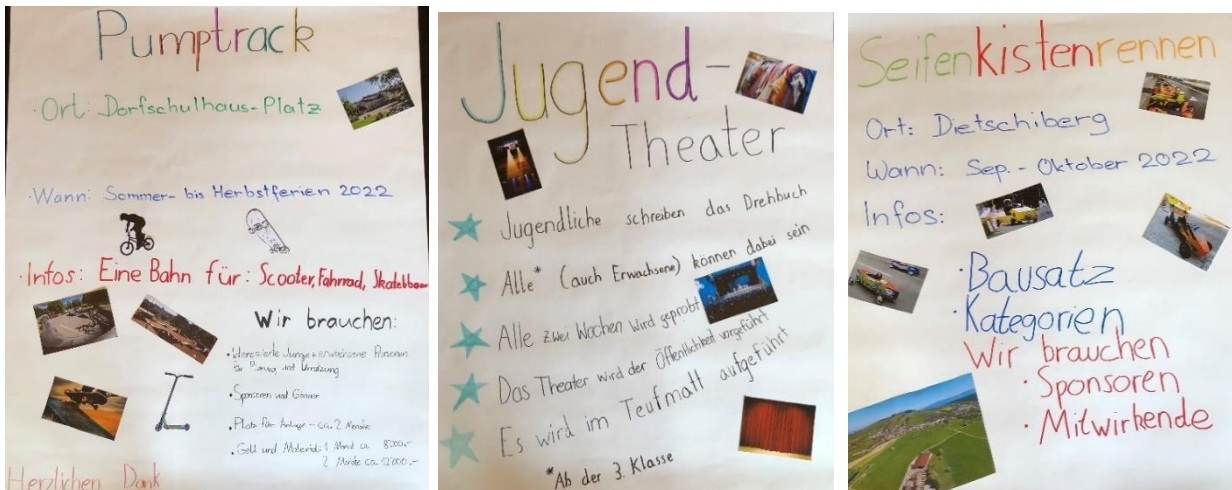 Pumptrack
· Ort: Dorfschulhaus-Platz
· Wann: Sommer- bis Herbstferien 2022
· Infos: Eine Bahn für: Scooter, Fahrrad,
Wir brauchen:
· Interessierte Junge + erwachsene Personen
für Planung und Umsetzung
· Sponsoren und Gönner
· Platz für Anlage - ca. 2 Monate
· Geld und Material: 1 Monat ca. 8'000.-
2 Monate ca. 12'000.-
Herzlichen Dank
Jugend-
Theater
Jugendliche schreiben das Drehbuch
Alle* (auch Erwachsene) können dabei sein
Alle zwei Wochen wird geprobt
Das Theater wird der Öffentlichkeit vorgeführt
Es wird im Teufmatt aufgeführt
*Ab der 3. Klasse
Seifenkistenrennen
Ort: Dietschiberg
Wann: Sep. - Oktober 2022
Infos:
· Bausatz
· Kategorien
Wir brauchen
· Sponsoren
· Mitwirkende